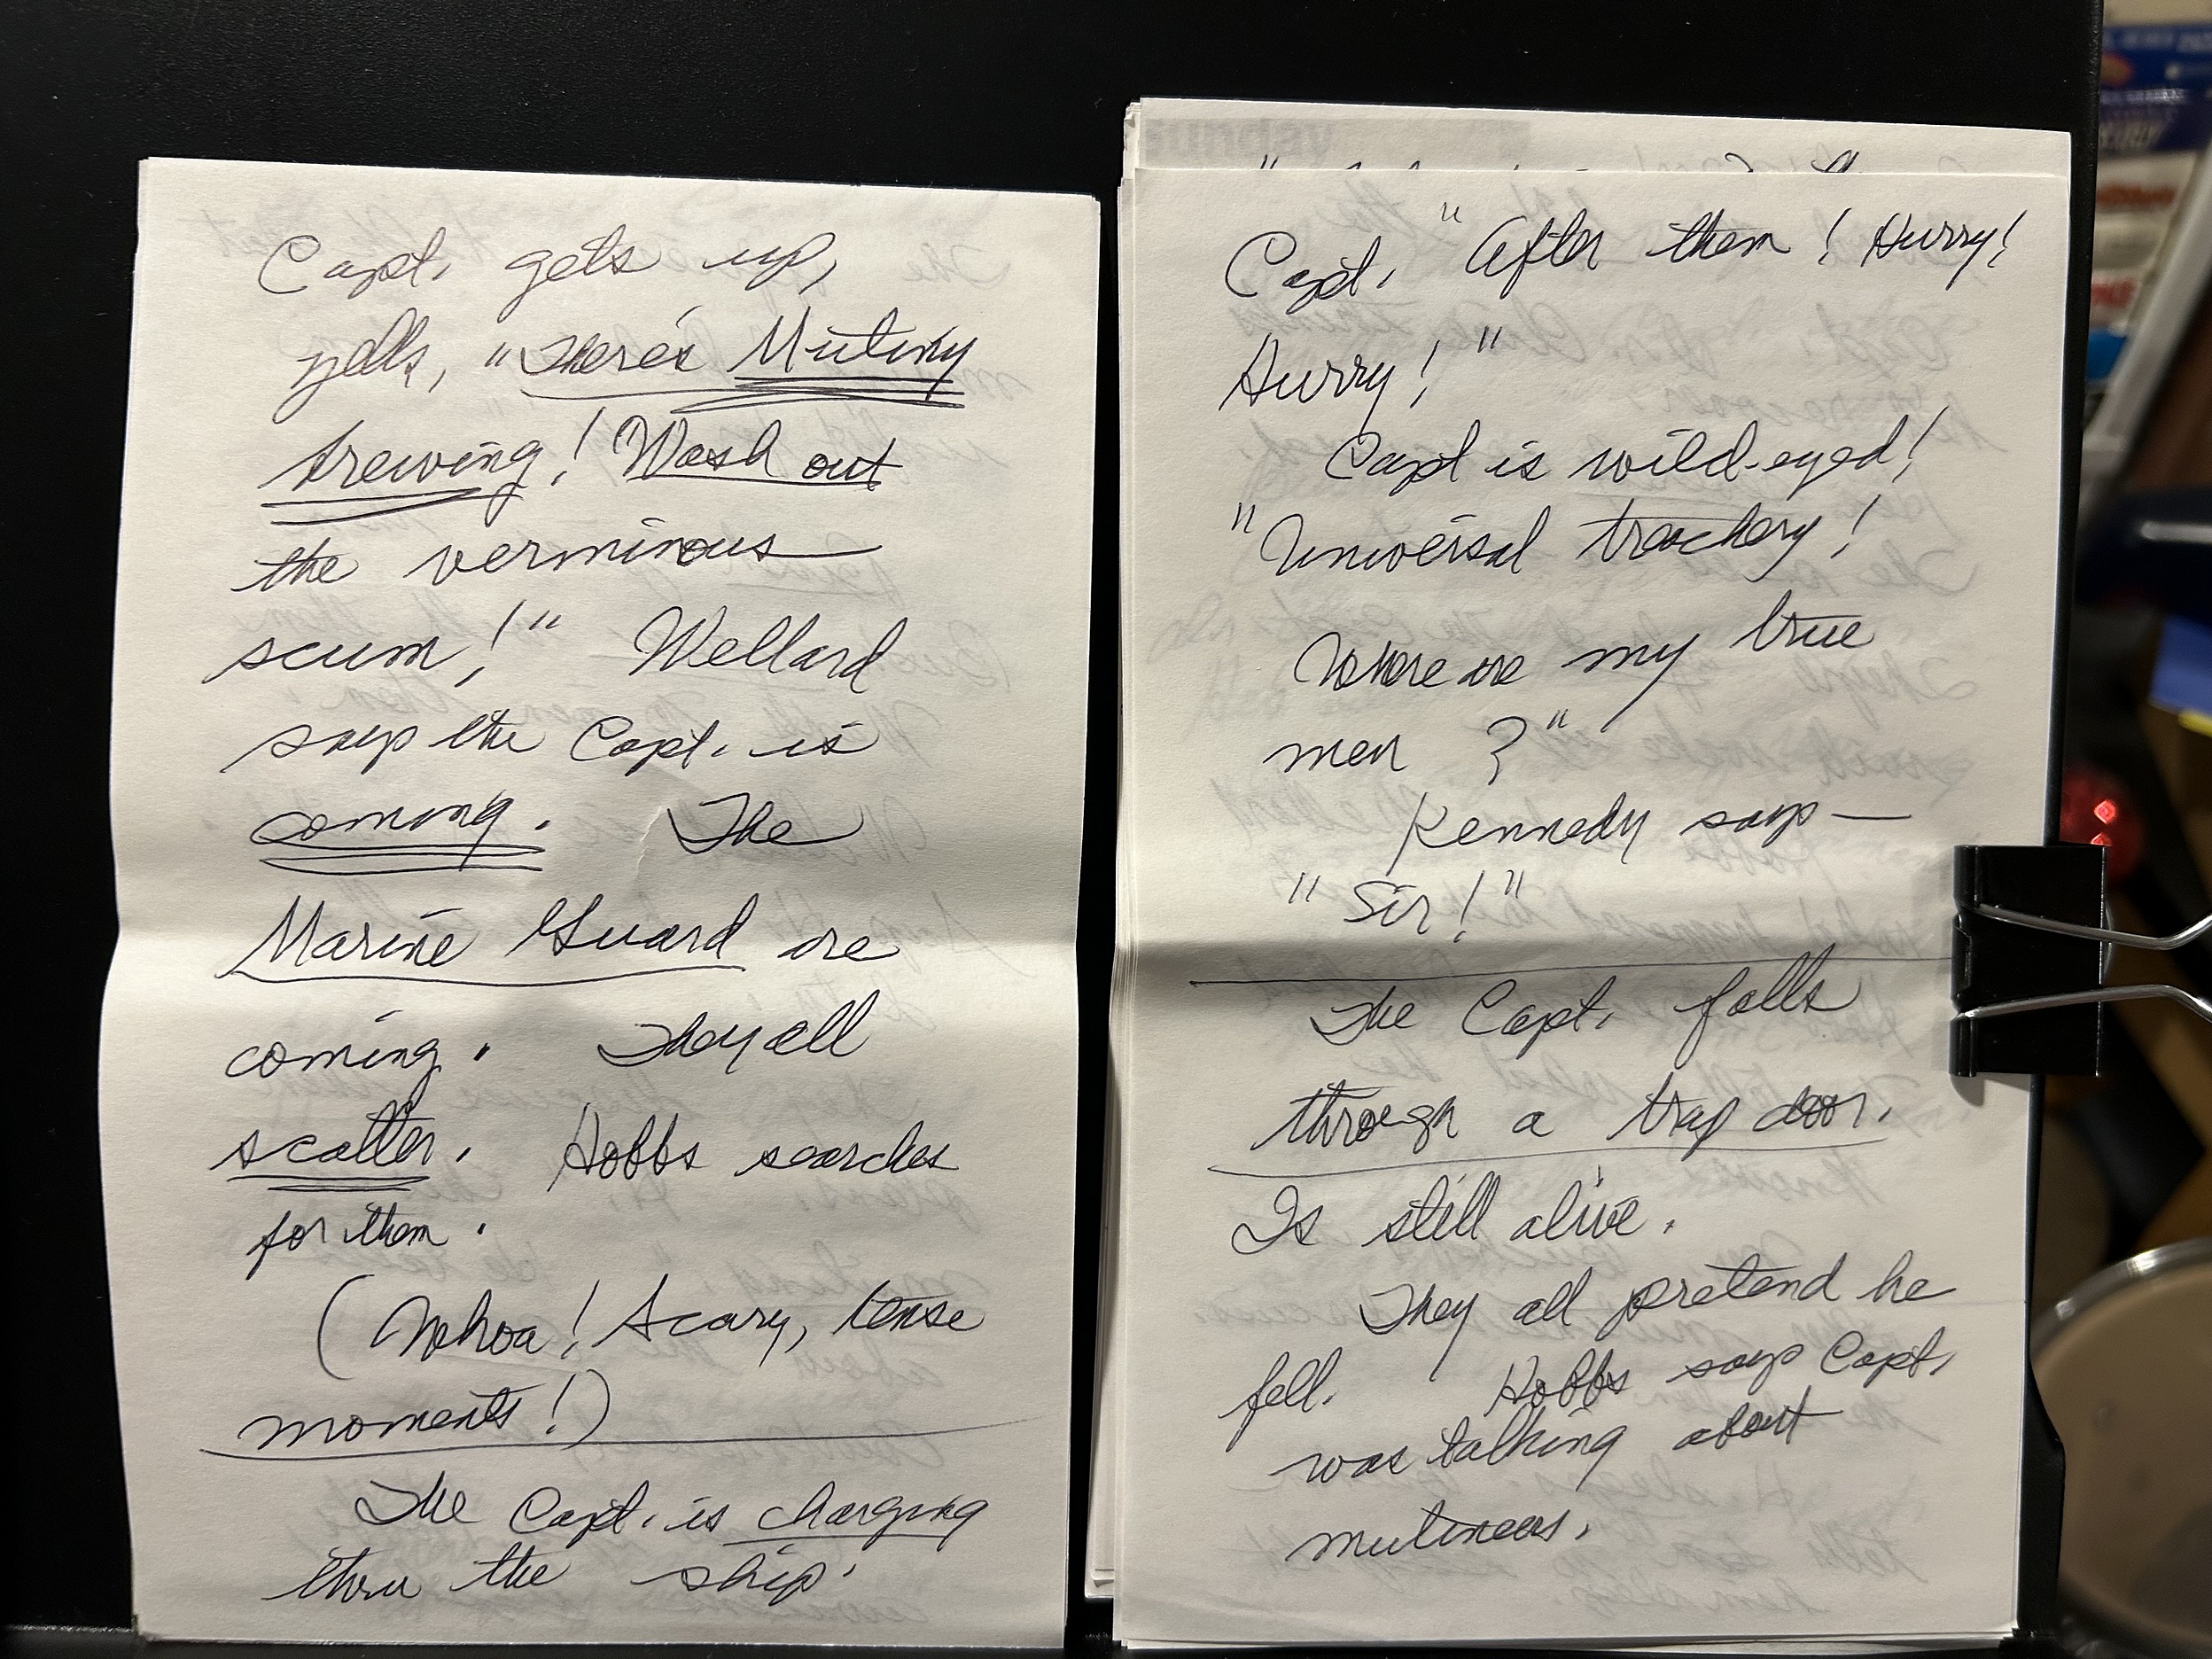 Capt. gets up,
yells, "There's Mutiny
brewing! Wash out
the verminous
scum!" Wellard
says the Capt. is
coming. The
Marine Guard are
coming. They all
scatter. Hobbs searches
for them.
(Whoa! Scary, tense
moments!)
The Capt. is charging
thru the ship.
unday
Capt. "After them! Hurry!
Hurry!"
Capt is wild-eyed!
"Universal treachery!
Where are my true
men?"
Kennedy says —
"Sir!"
The Capt. falls
through a trap door.
Is still alive.
They all pretend he
fell. Hobbs says Capt.
was talking about
mutineers.